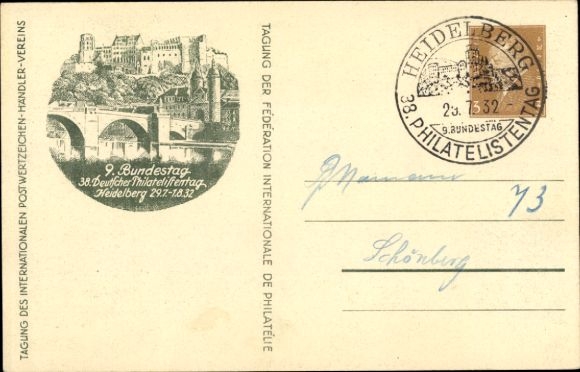 TAGUNG DES INTERNATIONALEN POSTWERTZEICHEN-HÄNDLER-VEREINS
9. Bundestag
38. Deutscher Philatelistentag
Heidelberg 29.7.-1.8.32
TAGUNG DER FÉDÉRATION INTERNATIONALE DE PHILATÉLIE
HEIDELBERG
32
9. BUNDESTAG
38. PHILATELISTENTAG
73
Schönberg